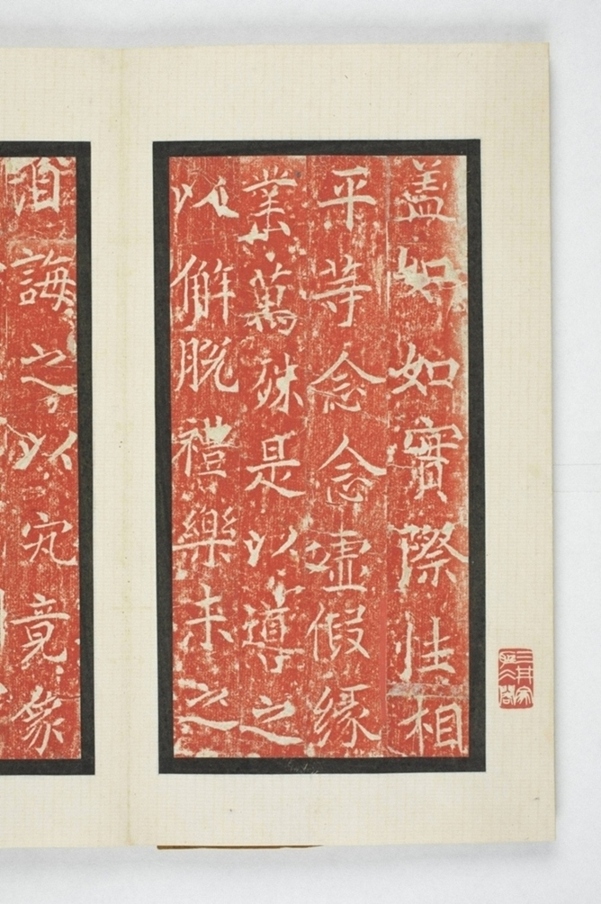 盖如如實際性相
平等念念虛假緣
業萬殊是以導之
以解脫禮樂未之
洎誨之以究竟象